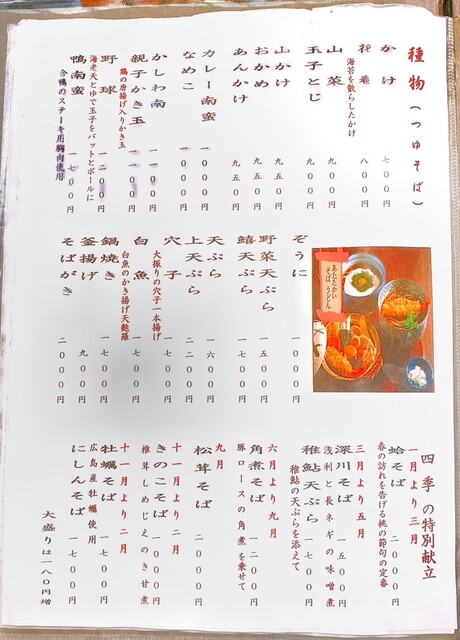 種物(つゆそば)
かけ 七〇〇円
花巻 八〇〇円
海苔を散らしたかけ
山菜 九〇〇円
玉子とじ 九〇〇円
山かけ 九五〇円
おかめ 九五〇円
あんかけ 九五〇円
カレー南蛮 一〇〇〇円
なめこ 一〇〇〇円
かしわ南 一一〇〇円
親子かき玉 一一〇〇円
鶏の唐揚げ入りかき玉
野球 一二〇〇円
海老天とゆで玉子をバットとボールに
鴨南蛮 一七〇〇円
合鴨のステーキ用胸肉使用
あたたかい
そば うどん
ぞうに 一〇〇〇円
野菜天ぷら 一五〇〇円
鱚天ぷら 一七〇〇円
天ぷら 一六〇〇円
上天ぷら 二〇〇〇円
穴子 一七〇〇円
大振りの穴子一本揚げ
白魚 一七〇〇円
白魚のかき揚げ天麩羅
鍋焼き 一七〇〇円
釜揚げ 九〇〇円
そばがき 二〇〇〇円
四季の特別献立
一月より三月
蛤そば 二〇〇〇円
春の訪れを告げる桃の節句の定番
三月より五月
深川そば 一五〇〇円
浅利と長ネギの味噌煮
稚鮎天ぷら 一七〇〇円
稚鮎の天ぷらを添えて
六月より九月
角煮そば 一二〇〇円
豚ロースの角煮を乗せて
九月
松茸そば 二〇〇〇円
十一月より二月
きのこそば 一五〇〇円
椎茸しめじえのき甘煮
十一月より二月
牡蠣そば 一七〇〇円
広島産牡蠣使用
にしんそば 一七〇〇円
大盛りは一八〇円増